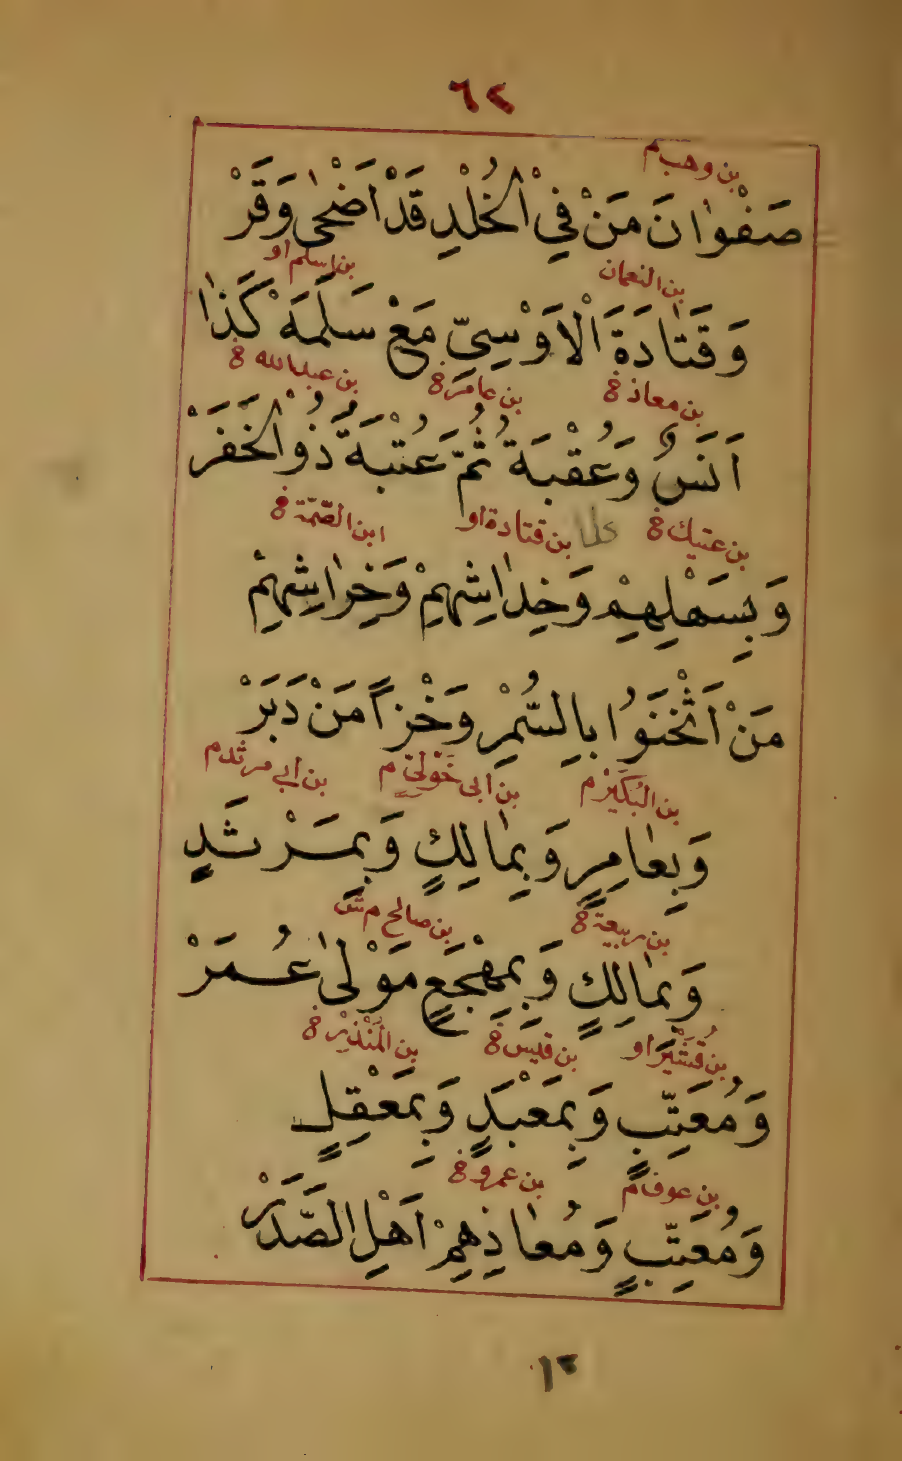 ٦٢
بن وهب م
صَفْوٰانَ مَنْ فِيْ الْخُلْدِ قَدْ اَضْحٰى وَقَرْ
بن النعمان بن اسلم او
وَقَتٰادَةَ الْاَوْسِىِّ مَعْ سَلَمَهْ كَذٰا
بن معاذ خ بن عامر خ بن عبدالله خ
اَنَسٌ وَعُقْبَةُ ثُمَّ عُتْبَةُ ذُو الْخَفَرْ
بن عتيك خ بن قتادة او ابن الصّمّة خ
وَبِسَهْلِهِمْ وَخِدٰاشِهِمْ وَخِرٰاشِهِمْ
مَنْ اَثْخَنَوُا بِالسُّمْرِ وَخْزاً مَنْ دَبَرْ
بن البُكَيْر م بن ابى خَوْلِىّ م بن ابي مرثد م
وَبِعٰامِرٍ وَبِمٰالِكٍ وَبِمَرْثَدٍ
بن ربيعة خ بن صالح م ش
وَبِمٰالِكٍ وَبِمِهْجَعٍ مَوْلٰى عُمَرْ
بن قُشَيْر او بن قيس خ بن المُنْذِرْ خ
وَمُعَتِّبٍ وَبِمَعْبَدٍ وَبِمَعْقِلٍ
بن عوف م بن عمرو خ
وَمُعَتِّبٍ وَمُعٰاذِهِمْ اَهْلِ الصَّدَرْ
١٢